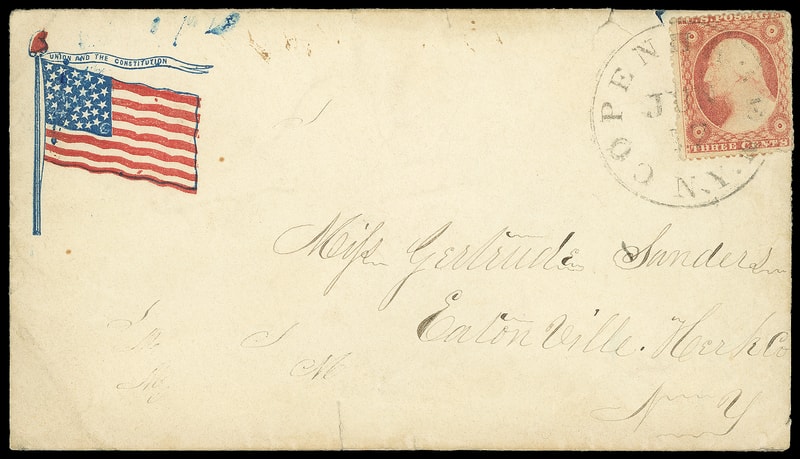 UNION AND THE CONSTITUTION
U.S. POSTAGE
THREE CENTS
COPEN
N.Y.
Miss Gertrude Sanders
Eaton Ville. Herk Co
N Y
S
S
M